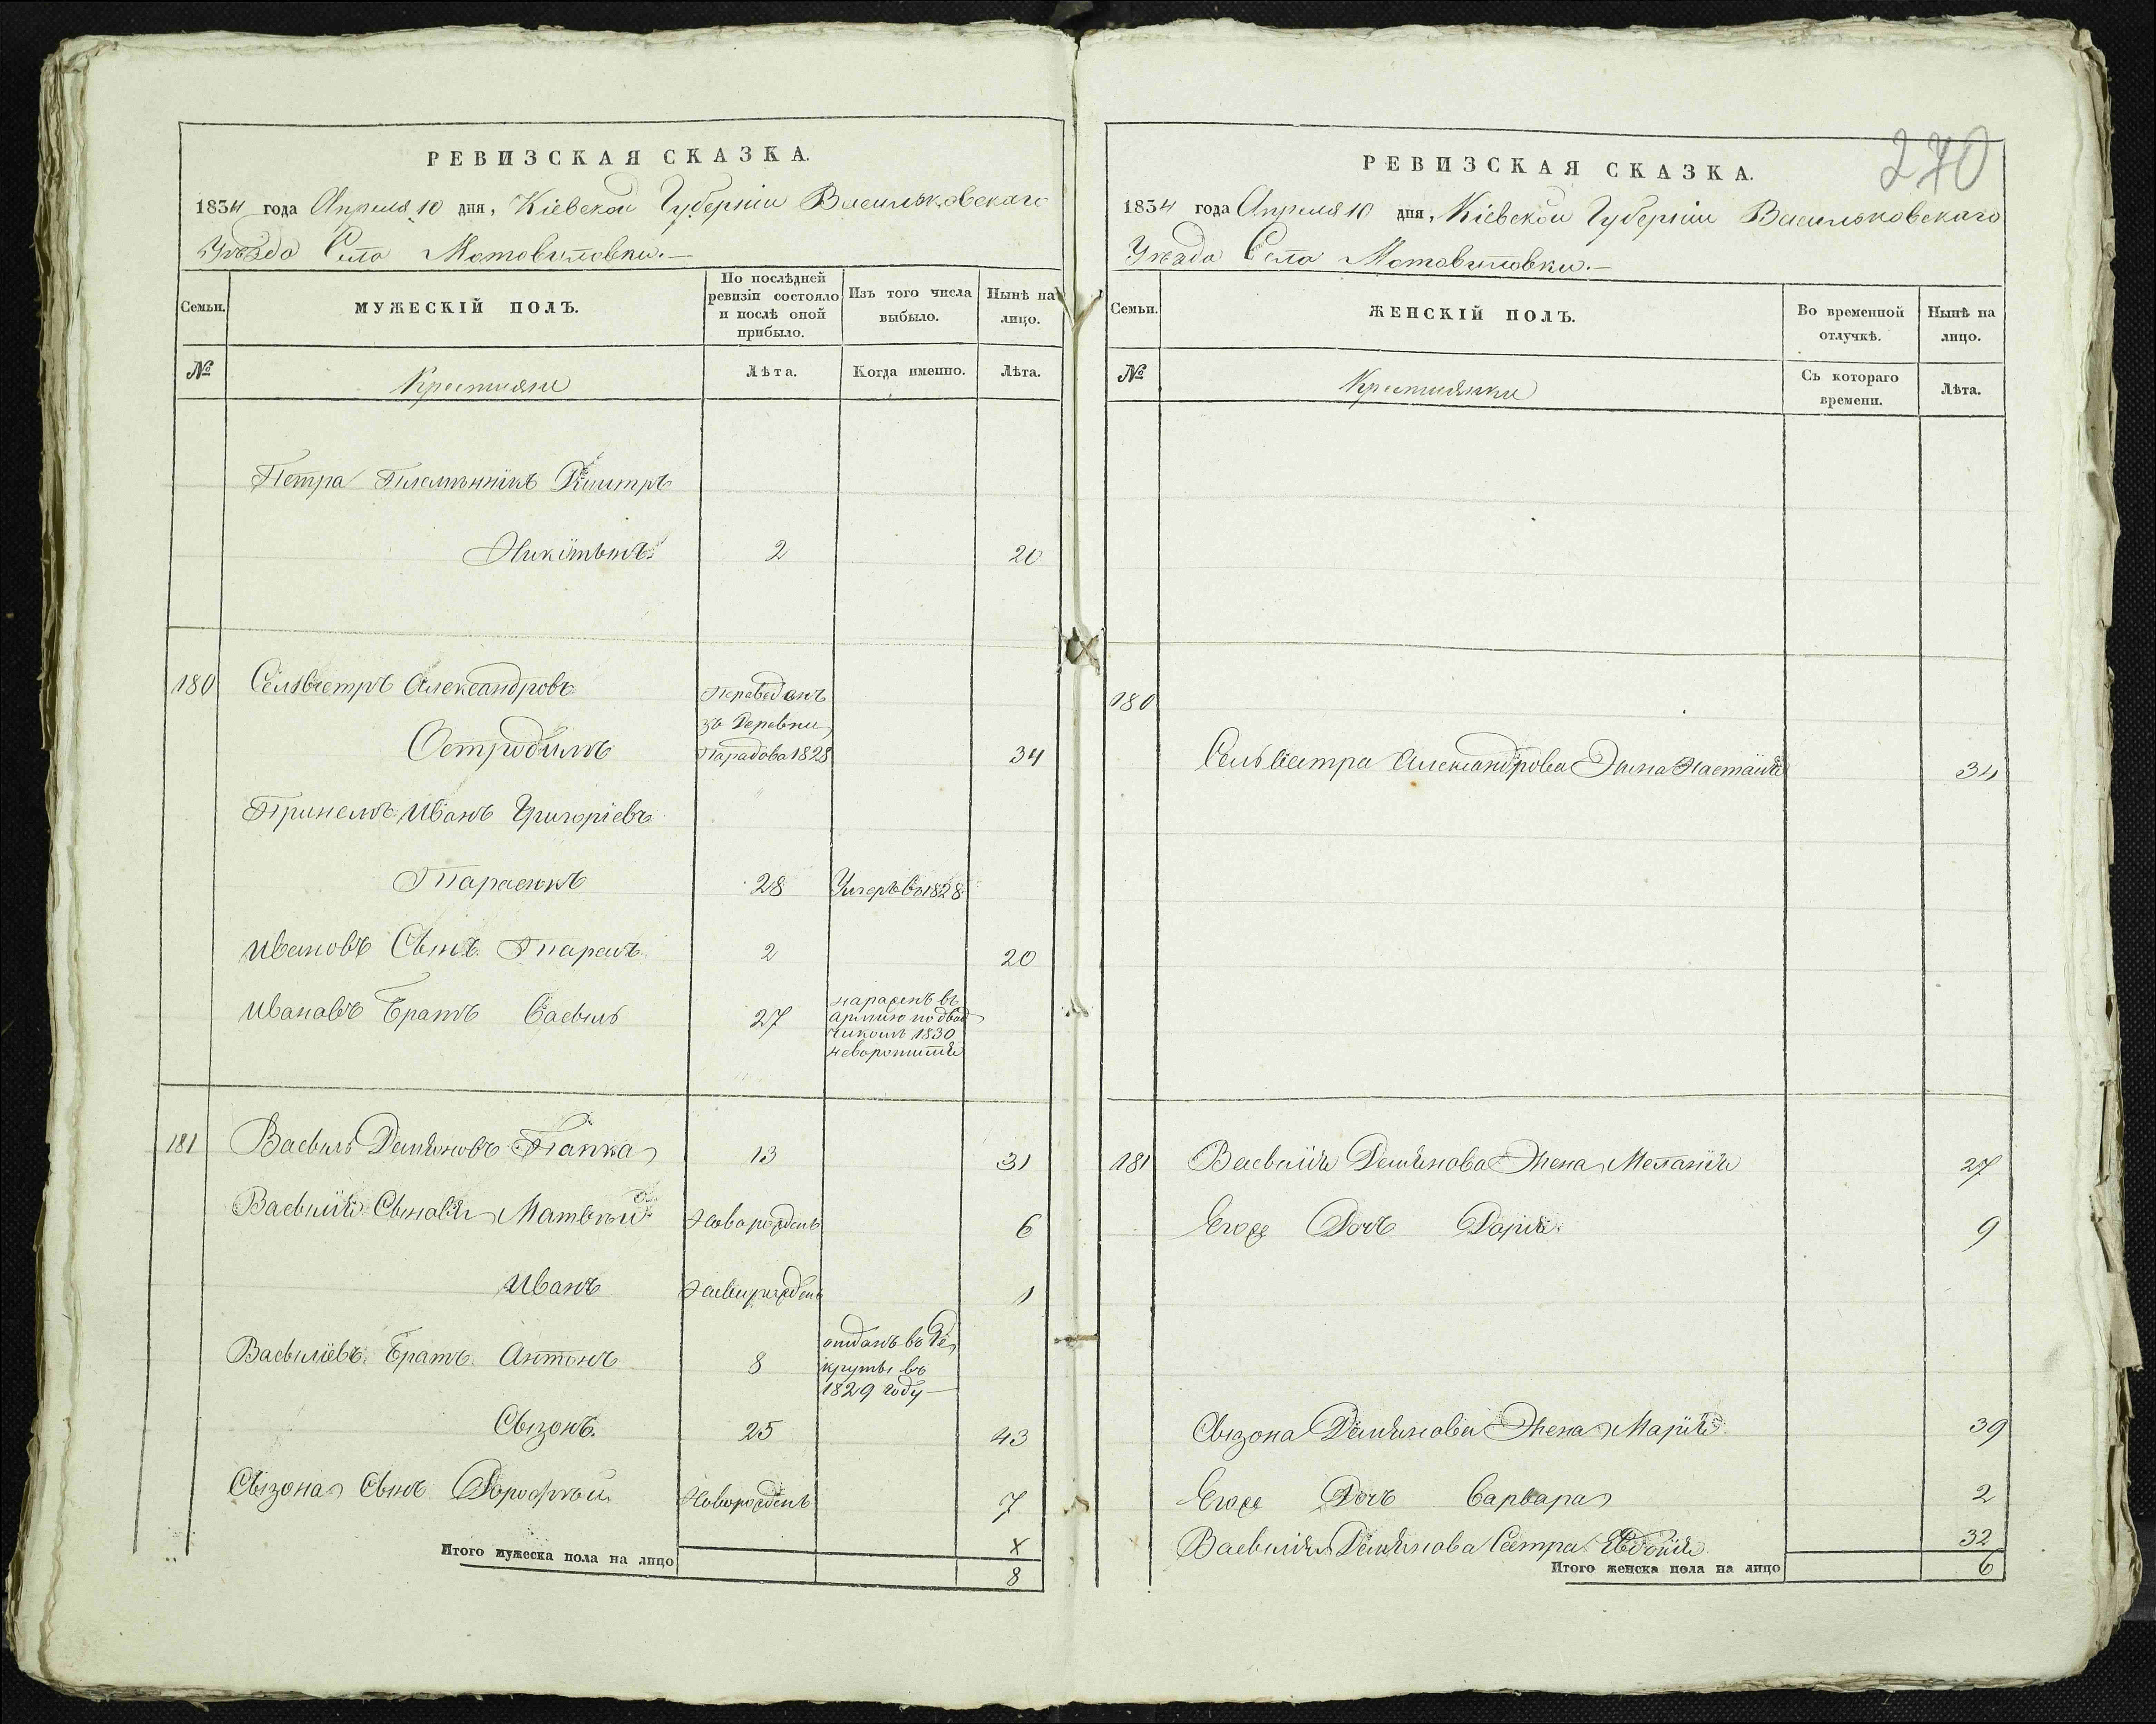 РЕВИЗСКАЯ СКАЗКА.
1834 года Апреля 10 дня, Кіевской Губерніи Васильковскаго
Уѣзда Села Мотовиловки.—
Семьи.
МУЖЕСКІЙ ПОЛЪ.
По послѣдней ревизіи состояло и послѣ оной прибыло.
Изъ того числа выбыло.
Нынѣ на лицо.
№
Крестияне
Лѣта.
Когда именно.
Лѣта.
Петра Племѣнникъ Дмитръ
Никітынъ 2 20
180 Селвестръ Александровъ Переведенъ
зъ Деревни
1828 34
Иванъ Григоріевъ
28 Умеръ въ 1828
Ивановъ Сынъ Тарасъ 2 20
Ивановъ Братъ Васыль 27
армию подвод
чикомъ 1830
181 Васыль Демяновъ Папка 13 31
Васыля Сыновя Матвѣй Новорожденъ 6
Иванъ Новорожденъ 1
Васылiевъ Братъ Антонъ 8 отданъ въ Ре
круты въ
1829 году—
Сызонъ. 25 43
Сызона Сынъ Дорофѣй Новорожденъ 7
Итого мужеска пола на лицо
х
8
270
РЕВИЗСКАЯ СКАЗКА.
1834 года Апреля 10 дня, Кіевской Губерніи Васильковскаго
Уѣзда Села Мотовиловки.—
Семьи.
ЖЕНСКІЙ ПОЛЪ.
Во временной отлучкѣ.
Нынѣ на лицо.
№
Крестиянки
Съ котораго времени.
Лѣта.
180
Селвестра Александрова Жена Настасія 34
181 Васылія Демянова Жена Меланія 27
Егоже Дочъ Дарія 9
Сызона Демянова Жена Марія 39
Егоже Дочъ Варвара 2
Васылія Демянова Сестра Евдокія 32
Итого женска пола на лицо 6